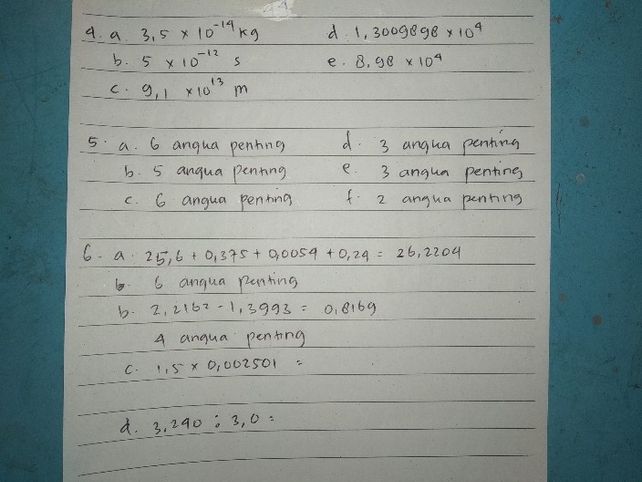 4. a. 3,5 × 10⁻¹⁴ kg d. 1,3009898 × 10⁴
b. 5 × 10⁻¹² s e. 8,98 × 10⁴
c. 9,1 × 10¹³ m
5. a. 6 angka penting d. 3 angka penting
b. 5 angka penting e. 3 angka penting
c. 6 angka penting f. 2 angka penting
6. a. 25,6 + 0,375 + 0,0054 + 0,24 = 26,2204
b. 6 angka penting
b. 2,2162 - 1,3993 = 0,8169
4 angka penting
c. 1,5 × 0,002501 =
d. 3,240 : 3,0 =